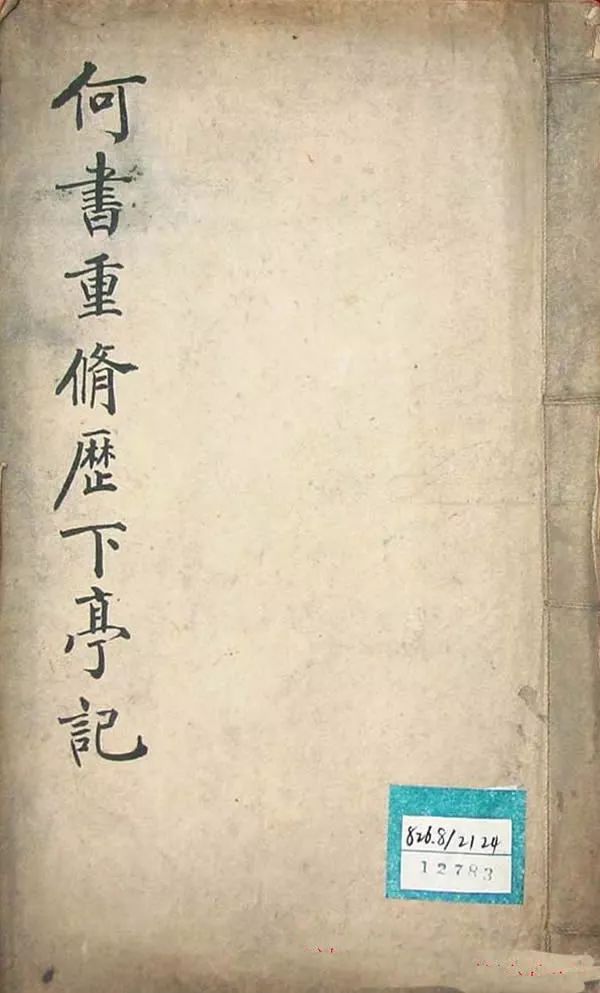 何書重脩歷下亭記
826.8/2124
12783